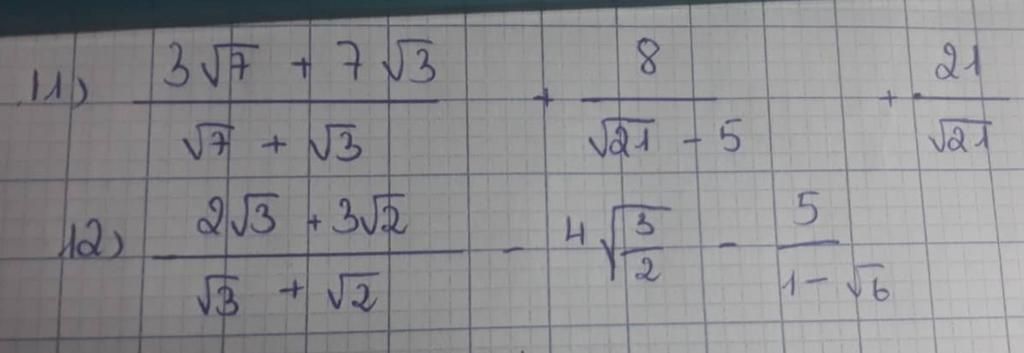 11) (3√7 + 7√3)/(√7 + √3) + 8/(√21 - 5) + 21/√21
12) (2√3 + 3√2)/(√3 + √2) - 4√(3/2) - 5/(1 - √6)